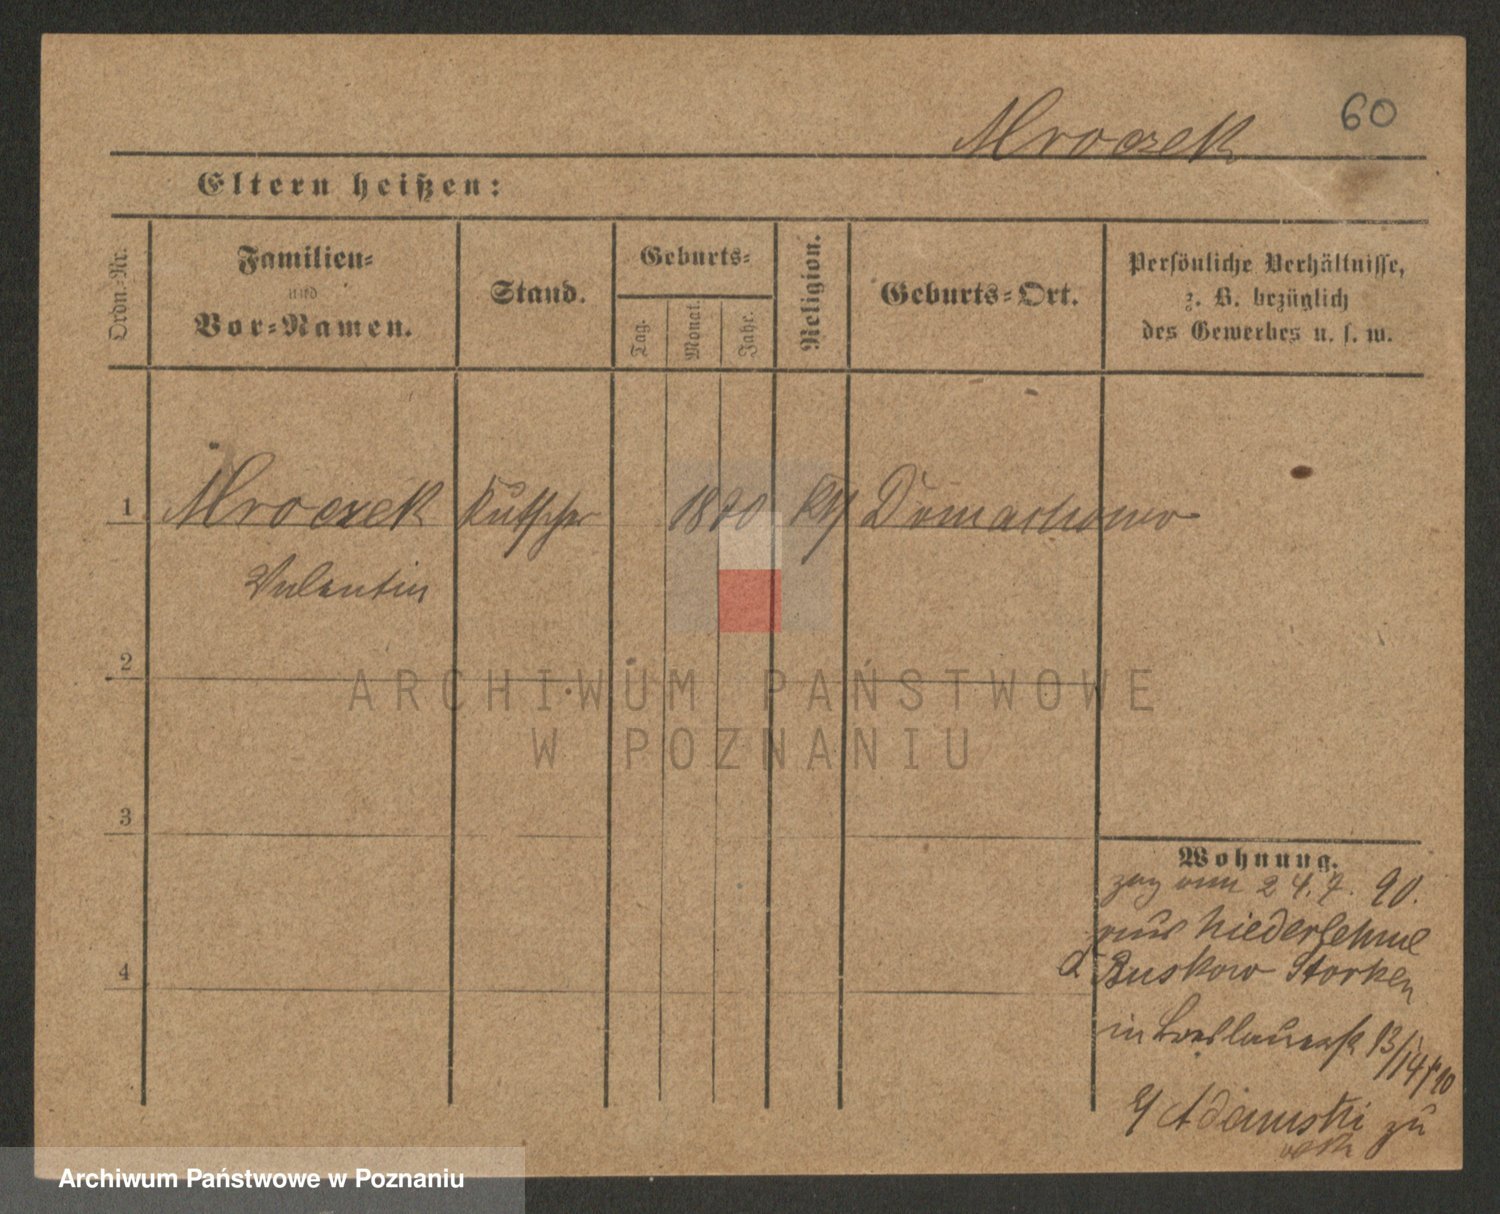 60
Mroczek
Eltern heißen:
Ordn.-Nr.
Familien-
und
Vor-Namen.
Stand.
Geburts-
Tag.
Monat.
Jahr.
Religion.
Geburts-Ort.
Persönliche Verhältnisse,
z. B. bezüglich
des Gewerbes u. s. w.
1 Mroczek Kutscher 1870 Kth Domachowo
Valentin
2
ARCHIWUM PAŃSTWOWE
W POZNANIU
3
4
Wohnung.
zog am 24.7. 90.
aus Niederlehme
Buskow Storkow
in Breslauerstr 13/14
Adamski zu
Archiwum Państwowe w Poznaniu